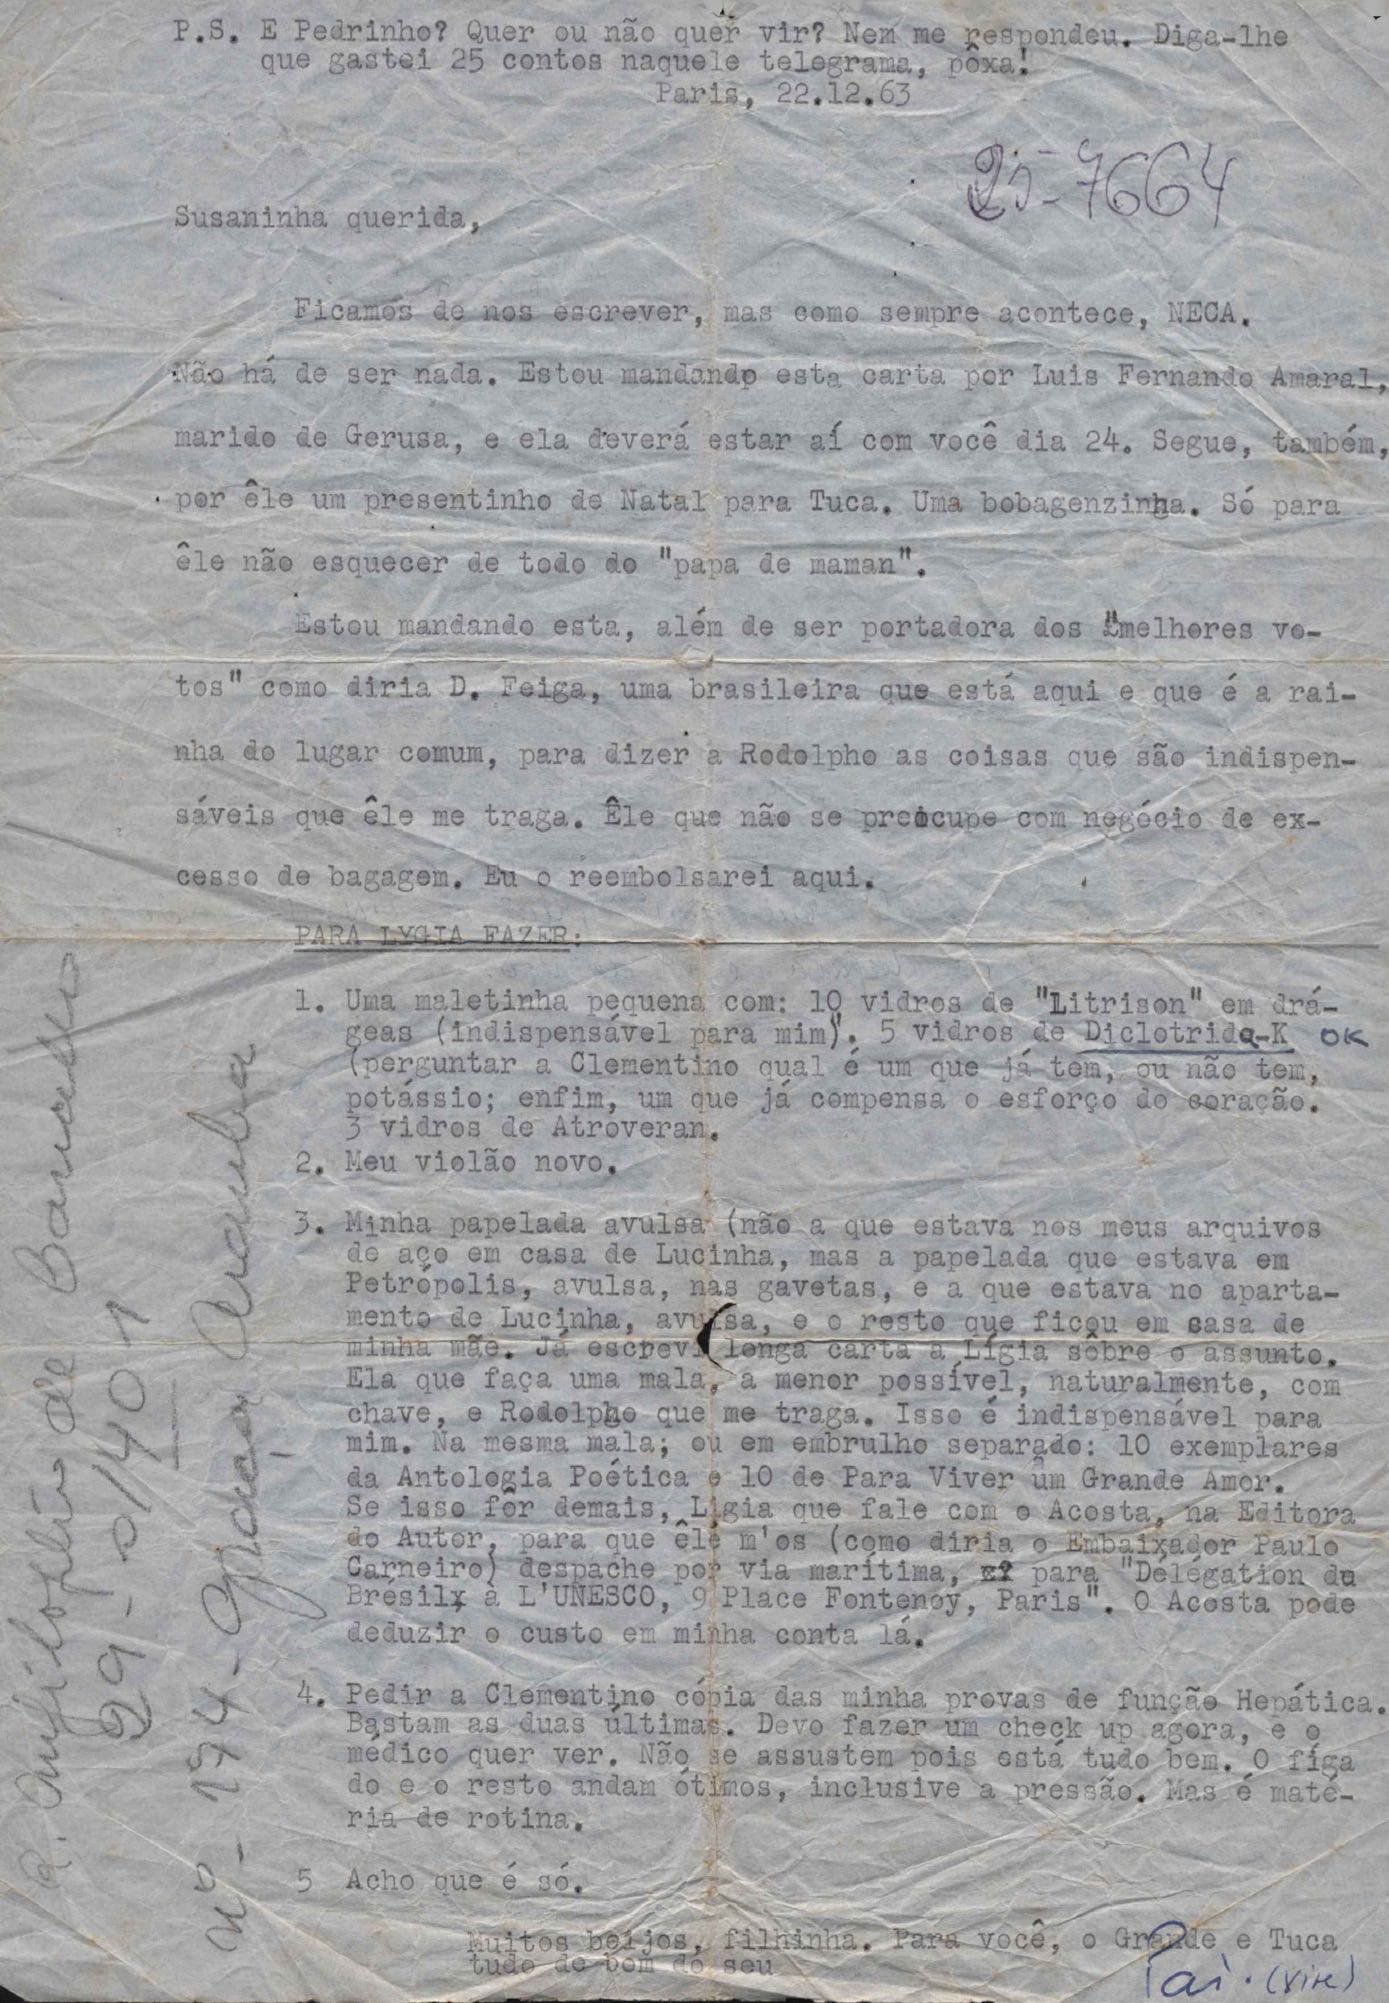 P.S. E Pedrinho? Quer ou não quer vir? Nem me respondeu. Diga-lhe
que gastei 25 contos naquele telegrama, pôxa!
Paris, 22.12.63
25-7664
Susaninha querida,
Ficamos de nos escrever, mas como sempre acontece, NECA.
Não há de ser nada. Estou mandando esta carta por Luis Fernando Amaral,
marido de Gerusa, e ela deverá estar aí com você dia 24. Segue, também,
por êle um presentinho de Natal para Tuca. Uma bobagenzinha. Só para
êle não esquecer de todo do "papa de maman".
Estou mandando esta, além de ser portadora dos "melhores vo-
tos" como diria D. Feiga, uma brasileira que está aqui e que é a rai-
nha do lugar comum, para dizer a Rodolpho as coisas que são indispen-
sáveis que êle me traga. Êle que não se preocupe com negócio de ex-
cesso de bagagem. Eu o reembolsarei aqui.
PARA LYGIA FAZER:
1. Uma maletinha pequena com: 10 vidros de "Litrison" em drá-
geas (indispensável para mim). 5 vidros de Diclotride-K OK
(perguntar a Clementino qual é um que já tem, ou não tem,
potássio; enfim, um que já compensa o esforço do coração.
3 vidros de Atroveran.
2. Meu violão novo.
3. Minha papelada avulsa (não a que estava nos meus arquivos
de aço em casa de Lucinha, mas a papelada que estava em
Petrópolis, avulsa, nas gavetas, e a que estava no aparta-
mento de Lucinha, avulsa, e o resto que ficou em casa de
minha mãe. Já escrevi longa carta a Lígia sôbre o assunto.
Ela que faça uma mala, a menor possível, naturalmente, com
chave, e Rodolpho que me traga. Isso é indispensável para
mim. Na mesma mala; ou em embrulho separado: 10 exemplares
da Antologia Poética e 10 de Para Viver um Grande Amor.
Se isso fôr demais, Lígia que fale com o Acosta, na Editora
do Autor, para que êle m'os (como diria o Embaixador Paulo
Carneiro) despache por via marítima, para "Delégation du
Brésil à L'UNESCO, 9 Place Fontenoy, Paris". O Acosta pode
deduzir o custo em minha conta lá.
4. Pedir a Clementino cópia das minha provas de função Hepática.
Bastam as duas últimas. Devo fazer um check up agora, e o
médico quer ver. Não se assustem pois está tudo bem. O fíga
do e o resto andam ótimos, inclusive a pressão. Mas é maté-
ria de rotina.
5 Acho que é só.
Muitos beijos, filhinha. Para você, o Grande e Tuca
tudo de bom do seu
Pai. (vire)
R. Anfilofio de Carvalho
29 - s/1401
nº 174 - Graça Aranha